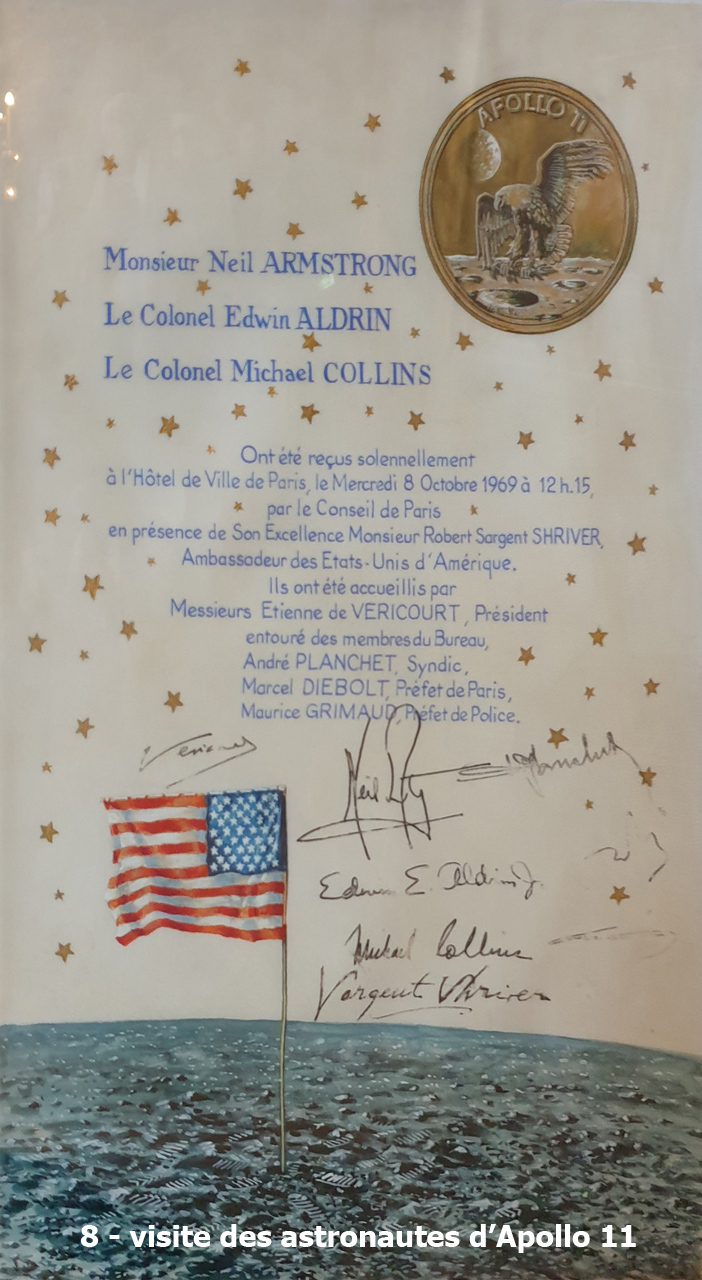 APOLLO 11
Monsieur Neil ARMSTRONG
Le Colonel Edwin ALDRIN
Le Colonel Michael COLLINS
Ont été reçus solennellement
à l'Hôtel de Ville de Paris, le Mercredi 8 Octobre 1969 à 12 h.15,
par le Conseil de Paris
en présence de Son Excellence Monsieur Robert Sargent SHRIVER,
Ambassadeur des Etats-Unis d'Amérique.
Ils ont été accueillis par
Messieurs Etienne de VERICOURT, Président
entouré des membres du Bureau,
André PLANCHET, Syndic,
Marcel DIEBOLT, Préfet de Paris,
Maurice GRIMAUD, Préfet de Police.
Neil
Edwin E. Aldrin Jr.
Michael Collins
Sargent Shriver
8 - visite des astronautes d'Apollo 11